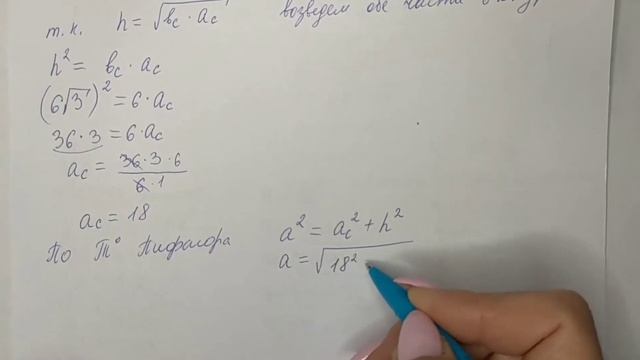 т.к. h = √(b_c · a_c) возведем обе части
h² = b_c · a_c
(6√3)² = 6 · a_c
36 · 3 = 6 · a_c
a_c = 36 · 3 · 6 / 6 · 1
a_c = 18
По Т° Пифагора
a² = a_c² + h²
a = √18²